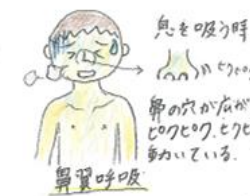 息を吸う時
鼻の穴が広が
ピクピク、ヒクヒ
動いている.
鼻翼呼吸